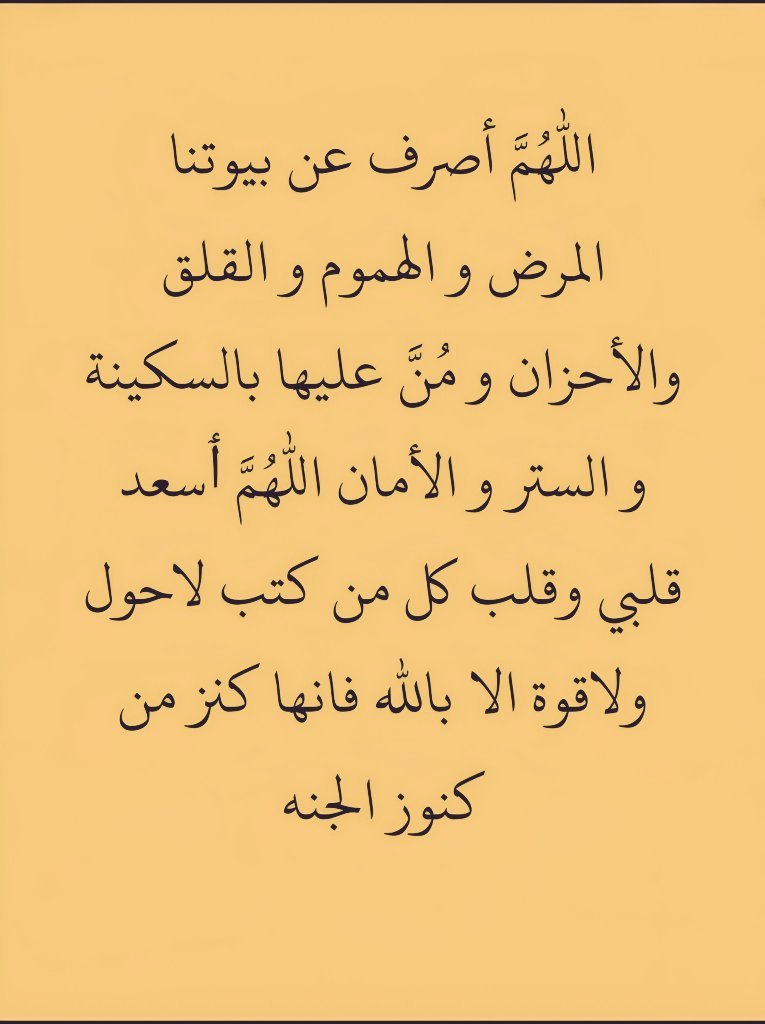 اللّٰهُمَّ أصرف عن بيوتنا
المرض و الهموم و القلق
والأحزان و مُنَّ عليها بالسكينة
و الستر و الأمان اللّٰهُمَّ أسعد
قلبي وقلب كل من كتب لاحول
ولاقوة الا بالله فانها كنز من
كنوز الجنه